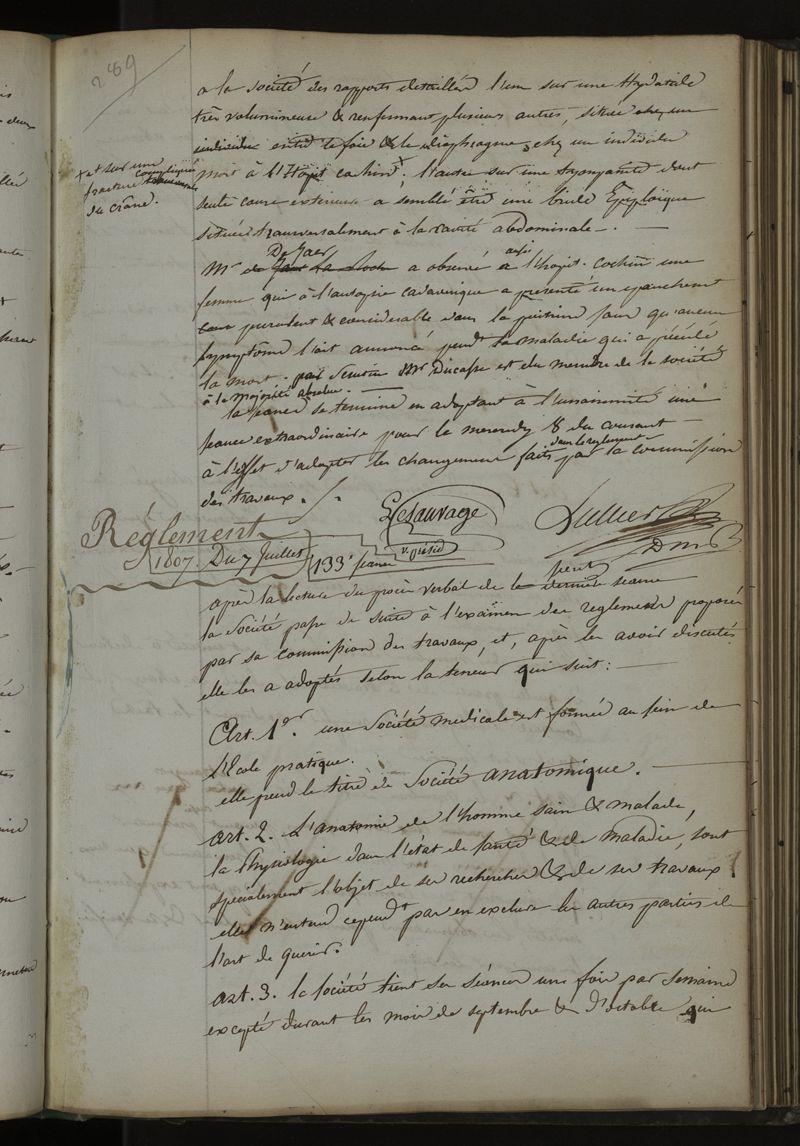 289
a la Société des rapports détaillés l'un sur une Hydatide
très volumineuse & renfermant plusieurs autres, située chez un
individu entre le foie & le diaphragme, chez un individu
mort à l'Hopit cochin +; l'autre sur une tympanite dont
+ et sur une
fracture compliquée
du crâne.
seule cause exterieure a semblé être une bride Épiploïque
située transversalement à la cavité abdominale. —
De Gaer
Mr de a observé aussi à l'hopit. cochin une
femme qui à l'autopsie cadaverique a présenté un epanchement
purulent & considerable dans la poitrine sans qu'aucun
symptôme l'ait annoncé pendt la maladie qui a précédé
la mort. — Mr Ducasse est élu membre de la société
à la majorité absolue. —
la séance se termine en adoptant à l'unanimité une
séance extraordinaire pour le mercredy 8 du courant
à l'effet d'adopter les changemens faits dans le reglement par la commission
des travaux.
Lesauvage
v. présid
Dmp
Réglement
1807. Du 7 Juillet 133e séance
après la lecture du procès verbal de la dernière séance
la Société passe de suite à l'exâmen des reglemens proposés
par sa commission des travaux, et, après les avoir discutés
elle les a adoptés selon la teneur qui suit : —
Art. 1er. une Société medicale est formée au sein de
l'École pratique.
elle prend le titre de Société anatomique. —
art. 2. L'anatomie de l'homme sain & malade,
la Physiologie dans l'état de santé & de maladie, sont
spécialement l'objet de ses recherches & de ses travaux
elle n'entend cependt pas en exclure les autres parties de
l'art de guérir.
art. 3. la société tient ses séances une fois par semaine
excepté durant les mois de septembre & d'octobre qui